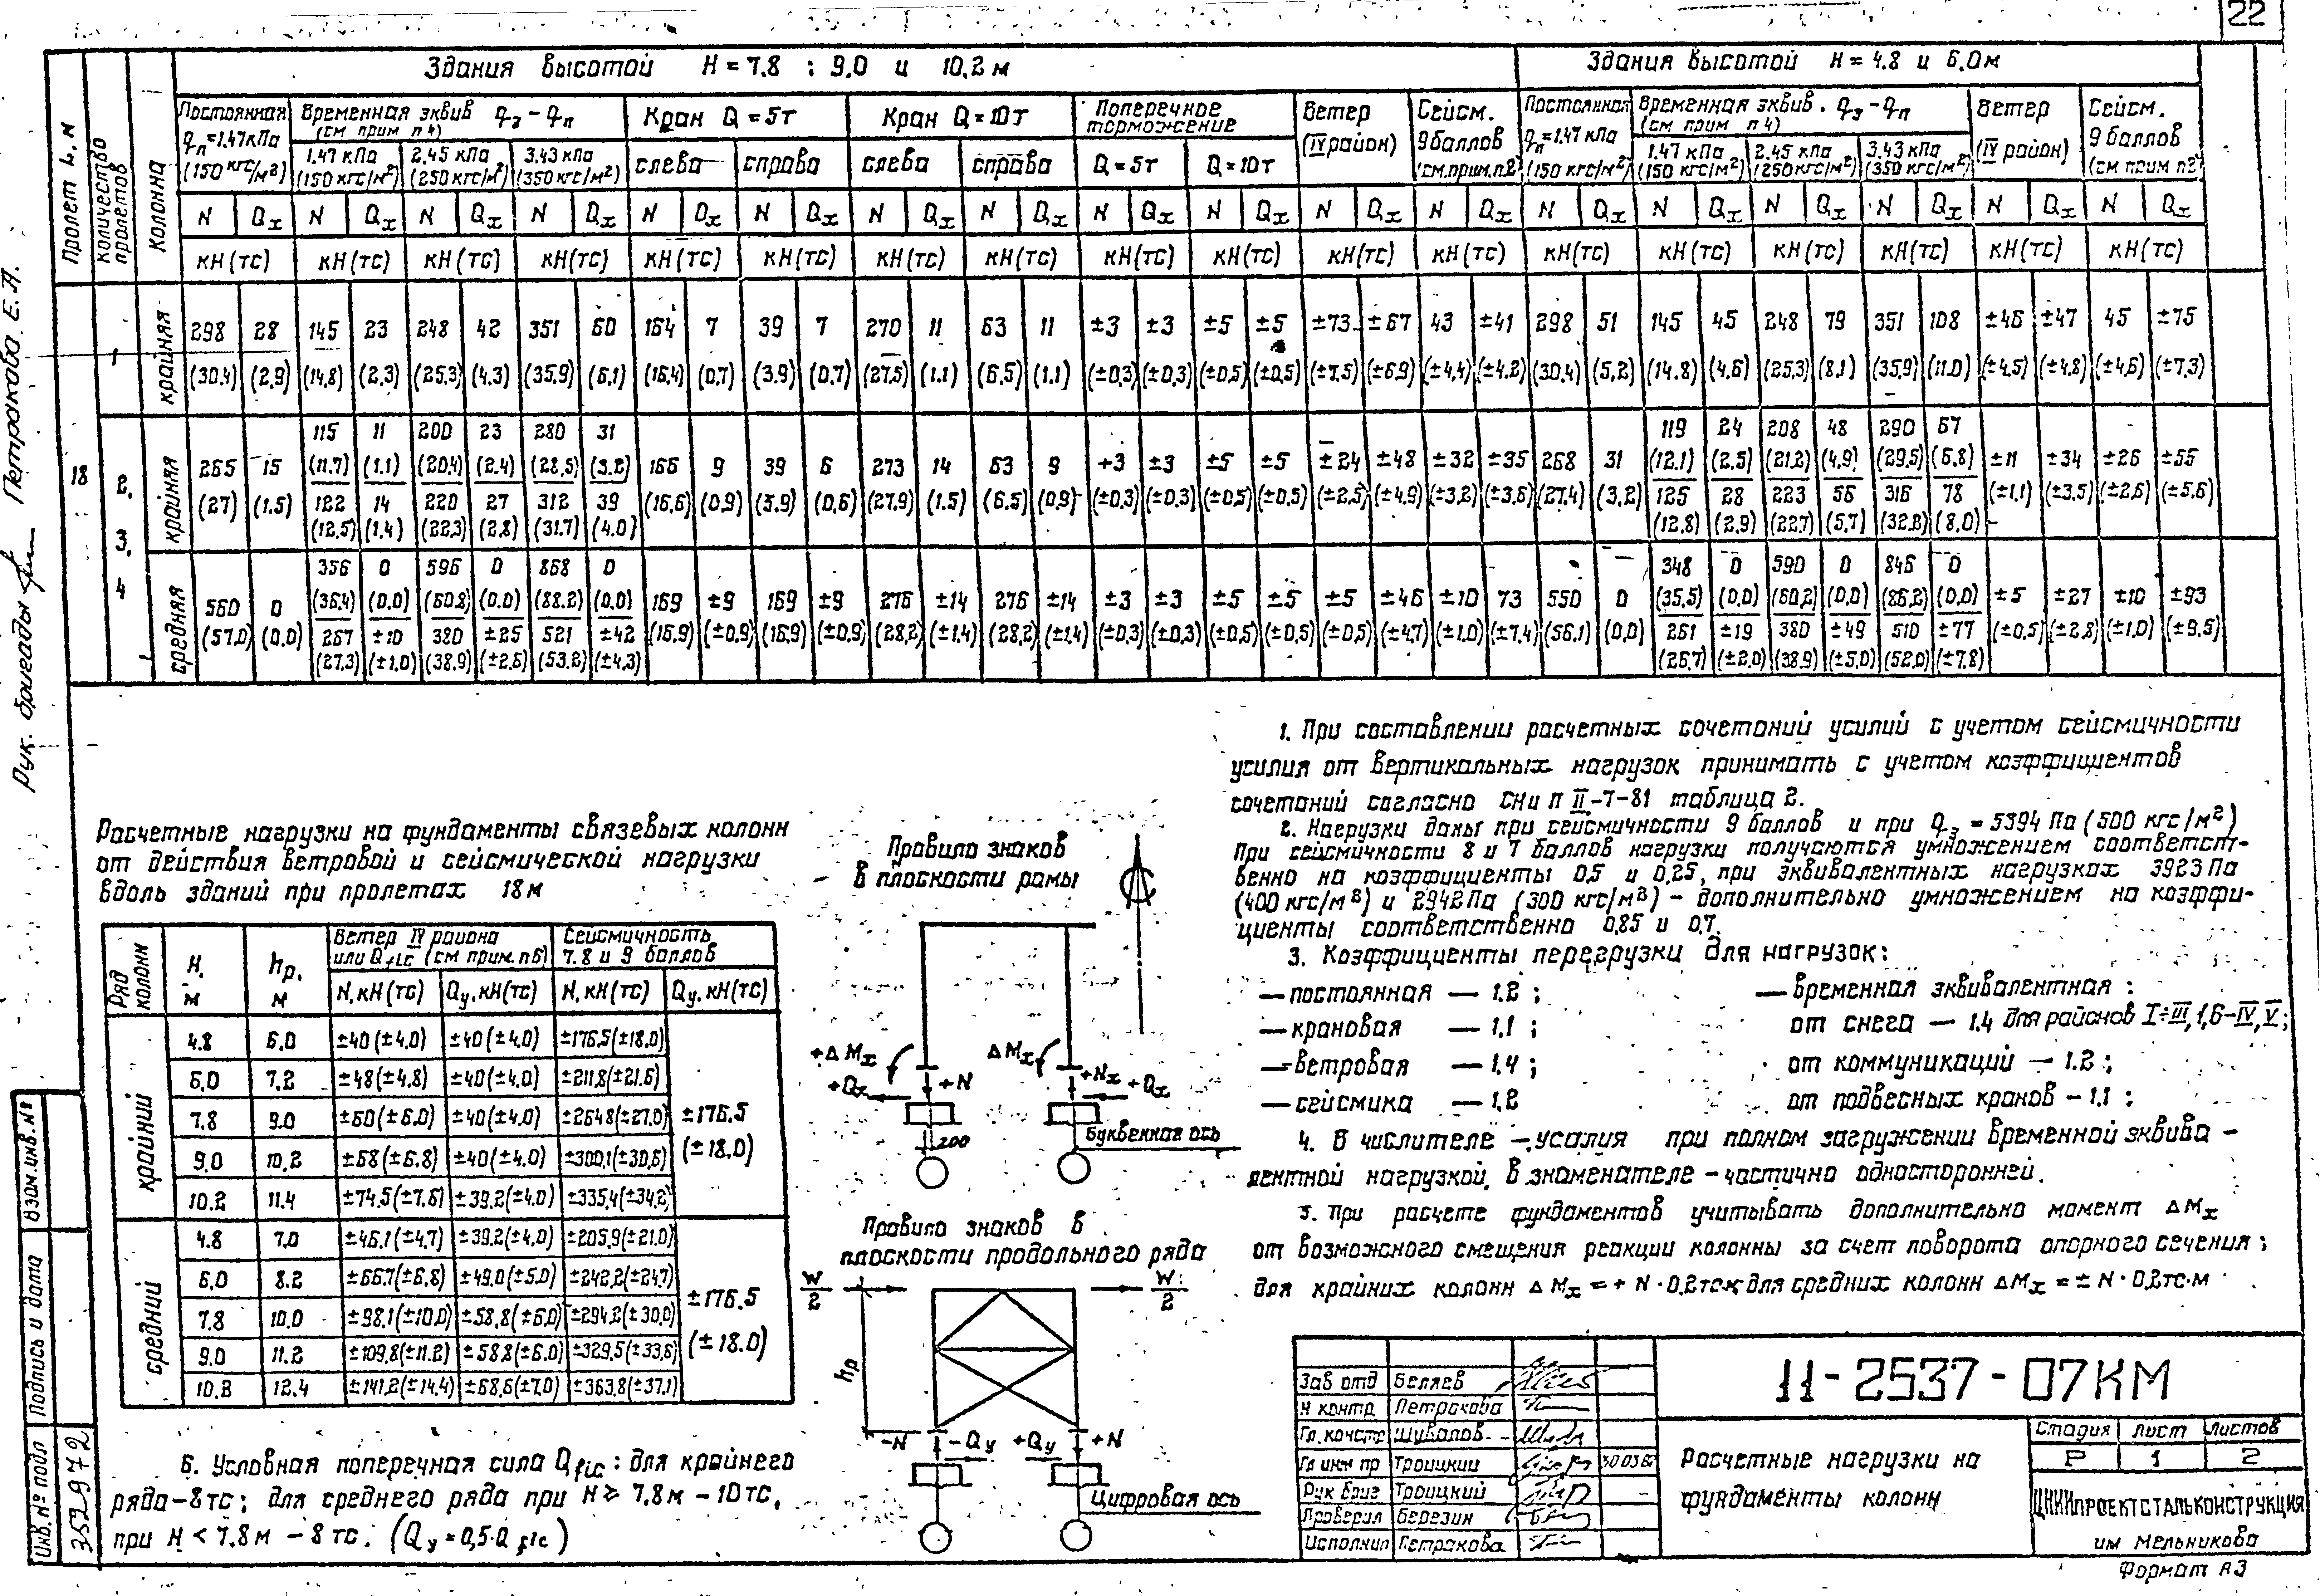 22
Здания высотой H = 7.8 ; 9.0 и 10.2 м
Здания высотой H = 4.8 и 6.0 м
Пролет L, м
Количество пролетов
Колонна
Постоянная qп = 1.47 кПа (150 кгс/м²)
Временная эквив qэ - qп (см прим п 4)
1.47 кПа (150 кгс/м²) 2.45 кПа (250 кгс/м²) 3.43 кПа (350 кгс/м²)
Кран Q = 5т
слева справа
Кран Q = 10т
слева справа
Поперечное торможение
Q = 5т Q = 10т
Ветер (IV район)
Сейсм. 9 баллов (см. прим. п2)
Постоянная qп = 1.47 кПа (150 кгс/м²)
Временная эквив. qэ - qп (см прим п 4)
1.47 кПа (150 кгс/м²) 2.45 кПа (250 кгс/м²) 3.43 кПа (350 кгс/м²)
Ветер (IV район)
Сейсм. 9 баллов (см прим п2)
N Qx N Qx N Qx N Qx N Qx N Qx N Qx N Qx N Qx N Qx N Qx N Qx N Qx N Qx N Qx N Qx N Qx N Qx
кН (тс) кН (тс) кН (тс) кН (тс) кН (тс) кН (тс) кН (тс) кН (тс) кН (тс) кН (тс) кН (тс) кН (тс) кН (тс) кН (тс) кН (тс) кН (тс) кН (тс) кН (тс)
18
1
крайняя
298 28 145 23 248 42 351 60 164 7 39 7 270 11 63 11 ±3 ±3 ±5 ±5 ±73 ±67 43 ±41 298 51 145 45 248 79 351 108 ±46 ±47 45 ±75
(30.4) (2.9) (14.8) (2.3) (25.3) (4.3) (35.9) (6.1) (16.4) (0.7) (3.9) (0.7) (27.5) (1.1) (6.5) (1.1) (±0.3) (±0.3) (±0.5) (±0.5) (±7.5) (±6.9) (±4.4) (±4.2) (30.4) (5.2) (14.8) (4.6) (25.3) (8.1) (35.9) (11.0) (±4.5) (±4.8) (±4.6) (±7.3)
2. 3. 4
крайняя
115 11 200 23 280 31 119 24 208 48 290 67
265 15 (11.7) (1.1) (20.4) (2.4) (28.5) (3.2) 166 9 39 6 273 14 63 9 +3 ±3 ±5 ±5 ±24 ±48 ±32 ±35 268 31 (12.1) (2.5) (21.2) (4.9) (29.5) (6.8) ±11 ±34 ±26 ±55
(27) (1.5) 122 14 220 27 312 39 (16.6) (0.9) (3.9) (0.6) (27.9) (1.5) (6.5) (0.9) (±0.3) (±0.3) (±0.5) (±0.5) (±2.5) (±4.9) (±3.2) (±3.6) (27.4) (3.2) 125 28 223 56 316 78 (±1.1) (±3.5) (±2.6) (±5.6)
(12.5) (1.4) (22.3) (2.8) (31.7) (4.0) (12.8) (2.9) (22.7) (5.7) (32.2) (8.0)
средняя
356 0 596 0 868 0 348 0 590 0 846 0
560 0 (36.4) (0.0) (60.8) (0.0) (88.2) (0.0) 169 ±9 169 ±9 276 ±14 276 ±14 ±3 ±3 ±5 ±5 ±5 ±46 ±10 73 550 0 (35.5) (0.0) (60.2) (0.0) (86.2) (0.0) ±5 ±27 ±10 ±93
(57.0) (0.0) 267 ±10 380 ±25 521 ±42 (16.9) (±0.9) (16.9) (±0.9) (28.2) (±1.4) (28.2) (±1.4) (±0.3) (±0.3) (±0.5) (±0.5) (±0.5) (±4.7) (±1.0) (±7.4) (56.1) (0.0) 261 ±19 380 ±49 510 ±77 (±0.5) (±2.8) (±1.0) (±9.5)
(27.3) (±1.0) (38.9) (±2.6) (53.2) (±4.3) (26.7) (±2.0) (38.9) (±5.0) (52.0) (±7.8)
Рук. бригады Петракова Е.А.
Расчетные нагрузки на фундаменты связевых колонн
от действия ветровой и сейсмической нагрузки
вдоль зданий при пролетах 18 м
Ряд колонн H, м hр, м
Ветер IV района или Qfic (см прим. п6)
Сейсмичность 7.8 и 9 баллов
N, кН (тс) Qy, кН (тс) N, кН (тс) Qy, кН (тс)
крайний
4.8 6.0 ±40 (±4.0) ±40 (±4.0) ±176.5 (±18.0)
6.0 7.2 ±48 (±4.8) ±40 (±4.0) ±211.8 (±21.6)
7.8 9.0 ±60 (±6.0) ±40 (±4.0) ±264.8 (±27.0) ±176.5
9.0 10.2 ±68 (±6.8) ±40 (±4.0) ±300.1 (±30.6) (±18.0)
10.2 11.4 ±74.5 (±7.6) ±39.2 (±4.0) ±335.4 (±34.2)
средний
4.8 7.0 ±46.1 (±4.7) ±39.2 (±4.0) ±205.9 (±21.0)
6.0 8.2 ±66.7 (±6.8) ±49.0 (±5.0) ±242.2 (±24.7)
7.8 10.0 ±98.1 (±10.0) ±58.8 (±6.0) ±294.2 (±30.0) ±176.5
9.0 11.2 ±109.8 (±11.2) ±58.8 (±6.0) ±329.5 (±33.6) (±18.0)
10.2 12.4 ±141.2 (±14.4) ±68.6 (±7.0) ±363.8 (±37.1)
6. Условная поперечная сила Qfic : для крайнего
ряда - 8 тс ; для среднего ряда при H ≥ 7.8 м - 10 тс,
при H < 7.8 м - 8 тс. (Qy = 0,5·Qfic)
Правило знаков
в плоскости рамы
+ΔMx ΔMx
+Qx +N +Nx +Qx
200
Буквенная ось
Правило знаков в
плоскости продольного ряда
W/2 W/2
hр
-N -Qy +Qy +N
Цифровая ось
1. При составлении расчетных сочетаний усилий с учетом сейсмичности
усилия от вертикальных нагрузок принимать с учетом коэффициентов
сочетаний согласно СНиП II-7-81 таблица 2.
2. Нагрузки даны при сейсмичности 9 баллов и при qэ = 5394 Па (500 кгс/м²)
При сейсмичности 8 и 7 баллов нагрузки получаются умножением соответст-
венно на коэффициенты 0.5 и 0.25, при эквивалентных нагрузках 3923 Па
(400 кгс/м²) и 2942 Па (300 кгс/м²) - дополнительно умножением на коэффи-
циенты соответственно 0.85 и 0.7.
3. Коэффициенты перегрузки для нагрузок:
— постоянная — 1.2 ; — временная эквивалентная :
— крановая — 1.1 ; от снега — 1.4 для районов I÷III, 1,6-IV, V ;
— ветровая — 1,4 ; от коммуникаций — 1.2 ;
— сейсмика — 1.2 от подвесных кранов - 1.1 ;
4. В числителе - усалия при полном загружении временной эквива-
лентной нагрузкой, в знаменателе - частично односторонней.
5. При расчете фундаментов учитывать дополнительно момент ΔMx
от возможного смещения реакции колонны за счет поворота опорного сечения ;
для крайних колонн ΔMx = + N · 0.2 тс·м для средних колонн ΔMx = ± N · 0.2 тс·м
11-2537-07КМ
Зав отд Беляев
Н контр Петракова
Гл. констр Шувалов
Гл инж пр Троицкий
Рук бриг Троицкий
Проверил Березин
Исполнил Петракова
Расчетные нагрузки на
фундаменты колонн
Стадия Лист Листов
Р 1 2
ЦНИИпроектстальконструкция
им Мельникова
Формат А3
Взам. инв. №
Подпись и дата
Инв. № подл
3529 972